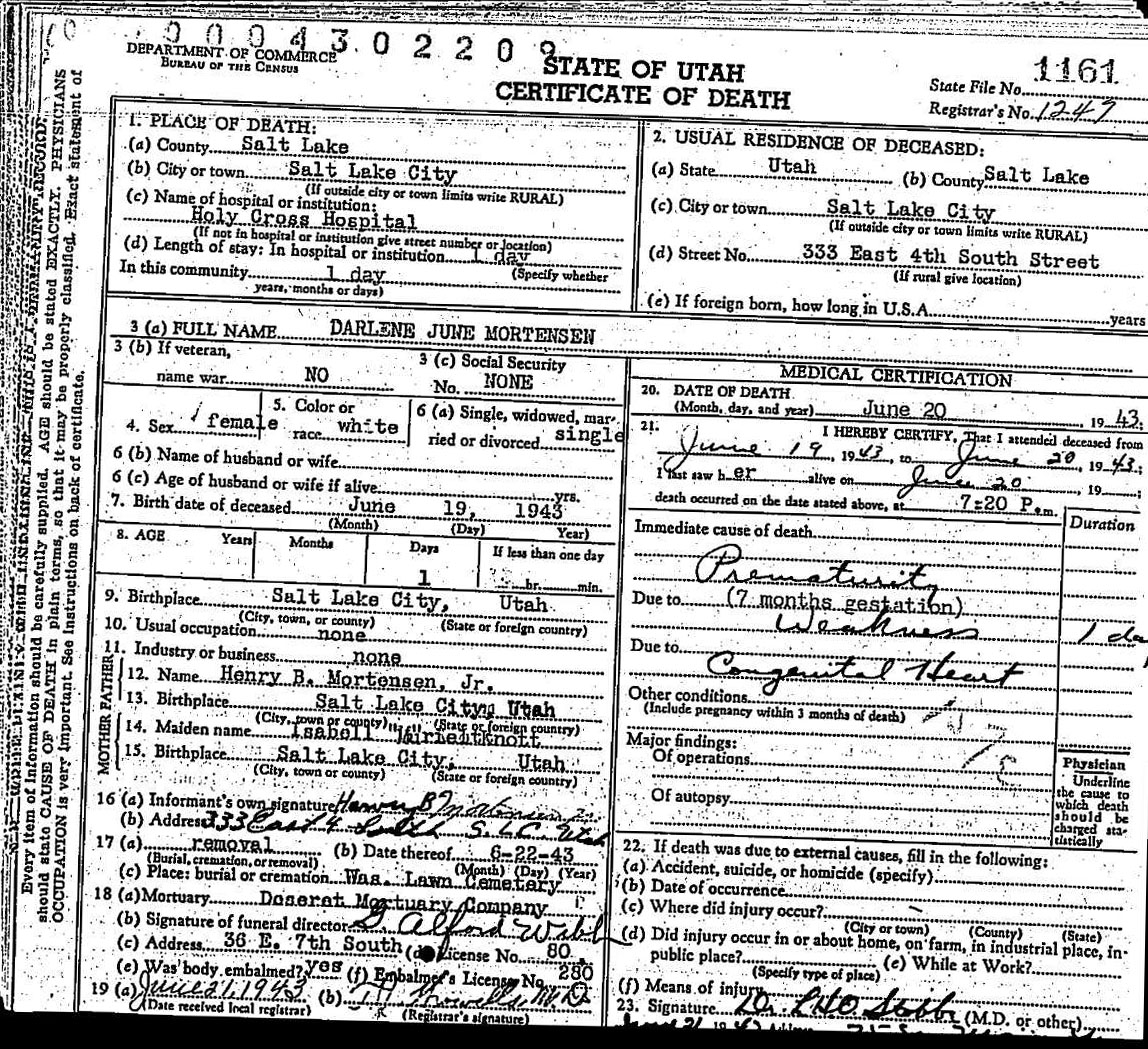 0004302209
DEPARTMENT OF COMMERCE
BUREAU OF THE CENSUS
STATE OF UTAH
CERTIFICATE OF DEATH
State File No. 1161
Registrar's No. 1247
Every item of information should be carefully supplied. AGE should be stated EXACTLY. PHYSICIANS
should state CAUSE OF DEATH in plain terms, so that it may be properly classified. Exact statement of
OCCUPATION is very important. See instructions on back of certificate.
1. PLACE OF DEATH:
(a) County Salt Lake
(b) City or town Salt Lake City
(If outside city or town limits write RURAL)
(c) Name of hospital or institution:
Holy Cross Hospital
(If not in hospital or institution give street number or location)
(d) Length of stay: In hospital or institution 1 day
In this community 1 day (Specify whether
years, months or days)
2. USUAL RESIDENCE OF DECEASED:
(a) State Utah (b) County Salt Lake
(c) City or town Salt Lake City
(If outside city or town limits write RURAL)
(d) Street No. 333 East 4th South Street
(If rural give location)
(e) If foreign born, how long in U.S.A. years
3 (a) FULL NAME DARLENE JUNE MORTENSEN
3 (b) If veteran,
name war NO
3 (c) Social Security
No. NONE
4. Sex female
5. Color or
race white
6 (a) Single, widowed, mar-
ried or divorced single
6 (b) Name of husband or wife
6 (c) Age of husband or wife if alive yrs.
7. Birth date of deceased June 19, 1943
(Month) (Day) Year)
8. AGE Years Months Days If less than one day
1 hr. min.
9. Birthplace Salt Lake City, Utah
(City, town, or county) (State or foreign country)
10. Usual occupation none
11. Industry or business none
FATHER
12. Name Henry B. Mortensen, Jr.
13. Birthplace Salt Lake City, Utah
(City, town or county) (State or foreign country)
MOTHER
14. Maiden name Isabell
15. Birthplace Salt Lake City, Utah
(City, town or county) (State or foreign country)
16 (a) Informant's own signature Henry B Mortensen Jr.
(b) Address 333 East 4 South S.L.C. Utah
17 (a) removal (b) Date thereof 6-22-43
(Burial, cremation, or removal) (Month) (Day) (Year)
(c) Place: burial or cremation Was. Lawn Cemetery
18 (a) Mortuary Deseret Mortuary Company
(b) Signature of funeral director Alford Webb
(c) Address 36 E. 7th South (d) License No. 80
(e) Was body embalmed? yes (f) Embalmer's License No. 280
19 (a) June 21, 1943 (b)
(Date received local registrar) (Registrar's signature)
MEDICAL CERTIFICATION
20. DATE OF DEATH
(Month, day, and year) June 20 19 43.
21. I HEREBY CERTIFY, That I attended deceased from
June 19, 1943, to June 20, 1943;
I last saw her alive on June 20, 19
death occurred on the date stated above, at 7:20 P.m.
Duration
Immediate cause of death
Prematurity
Due to (7 months gestation)
Weakness 1 da
Due to
Congenital Heart
Other conditions
(Include pregnancy within 3 months of death)
Major findings:
Of operations
Of autopsy
Physician
Underline
the cause to
which death
should be
charged sta-
tistically
22. If death was due to external causes, fill in the following:
(a) Accident, suicide, or homicide (specify)
(b) Date of occurrence
(c) Where did injury occur?
(City or town) (County) (State)
(d) Did injury occur in or about home, on farm, in industrial place, in-
public place? (e) While at Work?
(Specify type of place)
(f) Means of injury
23. Signature Dr. (M.D. or other)